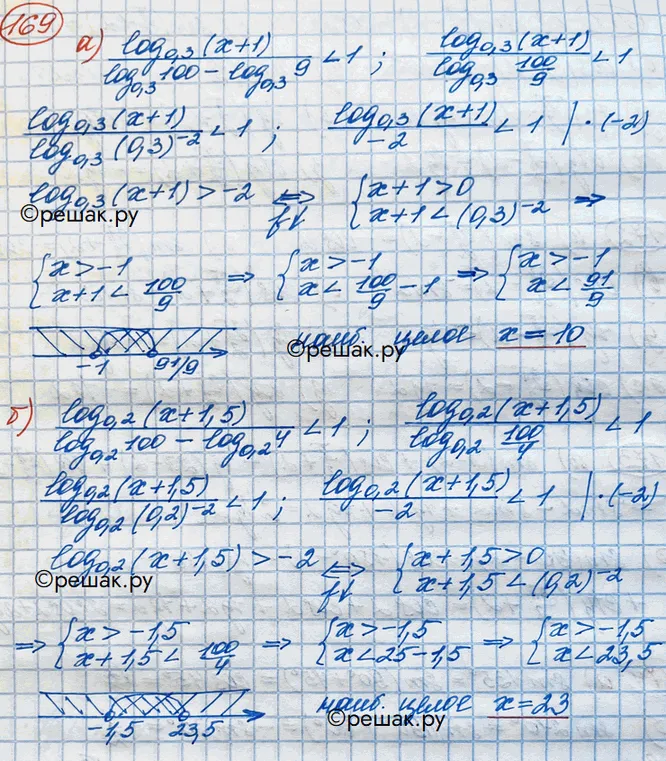 169
а) log₀,₃(x+1) / (log₀,₃100 − log₀,₃9) < 1 ; log₀,₃(x+1) / log₀,₃ 100/9 < 1
log₀,₃(x+1) / log₀,₃(0,3)⁻² < 1 ; log₀,₃(x+1) / −2 < 1 | · (−2)
log₀,₃(x+1) > −2 ⇔ f↓ { x+1 > 0 ; x+1 < (0,3)⁻² ⇒
©решак.ру
{ x > −1 ; x+1 < 100/9 ⇒ { x > −1 ; x < 100/9 − 1 ⇒ { x > −1 ; x < 91/9
−1 91/9 наиб. целое x = 10
©решак.ру
б) log₀,₂(x+1,5) / (log₀,₂100 − log₀,₂4) < 1 ; log₀,₂(x+1,5) / log₀,₂ 100/4 < 1
log₀,₂(x+1,5) / log₀,₂(0,2)⁻² < 1 ; log₀,₂(x+1,5) / −2 < 1 | · (−2)
log₀,₂(x+1,5) > −2 ⇔ f↓ { x+1,5 > 0 ; x+1,5 < (0,2)⁻²
©решак.ру
⇒ { x > −1,5 ; x+1,5 < 100/4 ⇒ { x > −1,5 ; x < 25−1,5 ⇒ { x > −1,5 ; x < 23,5
−1,5 23,5 наиб. целое x = 23
©решак.ру